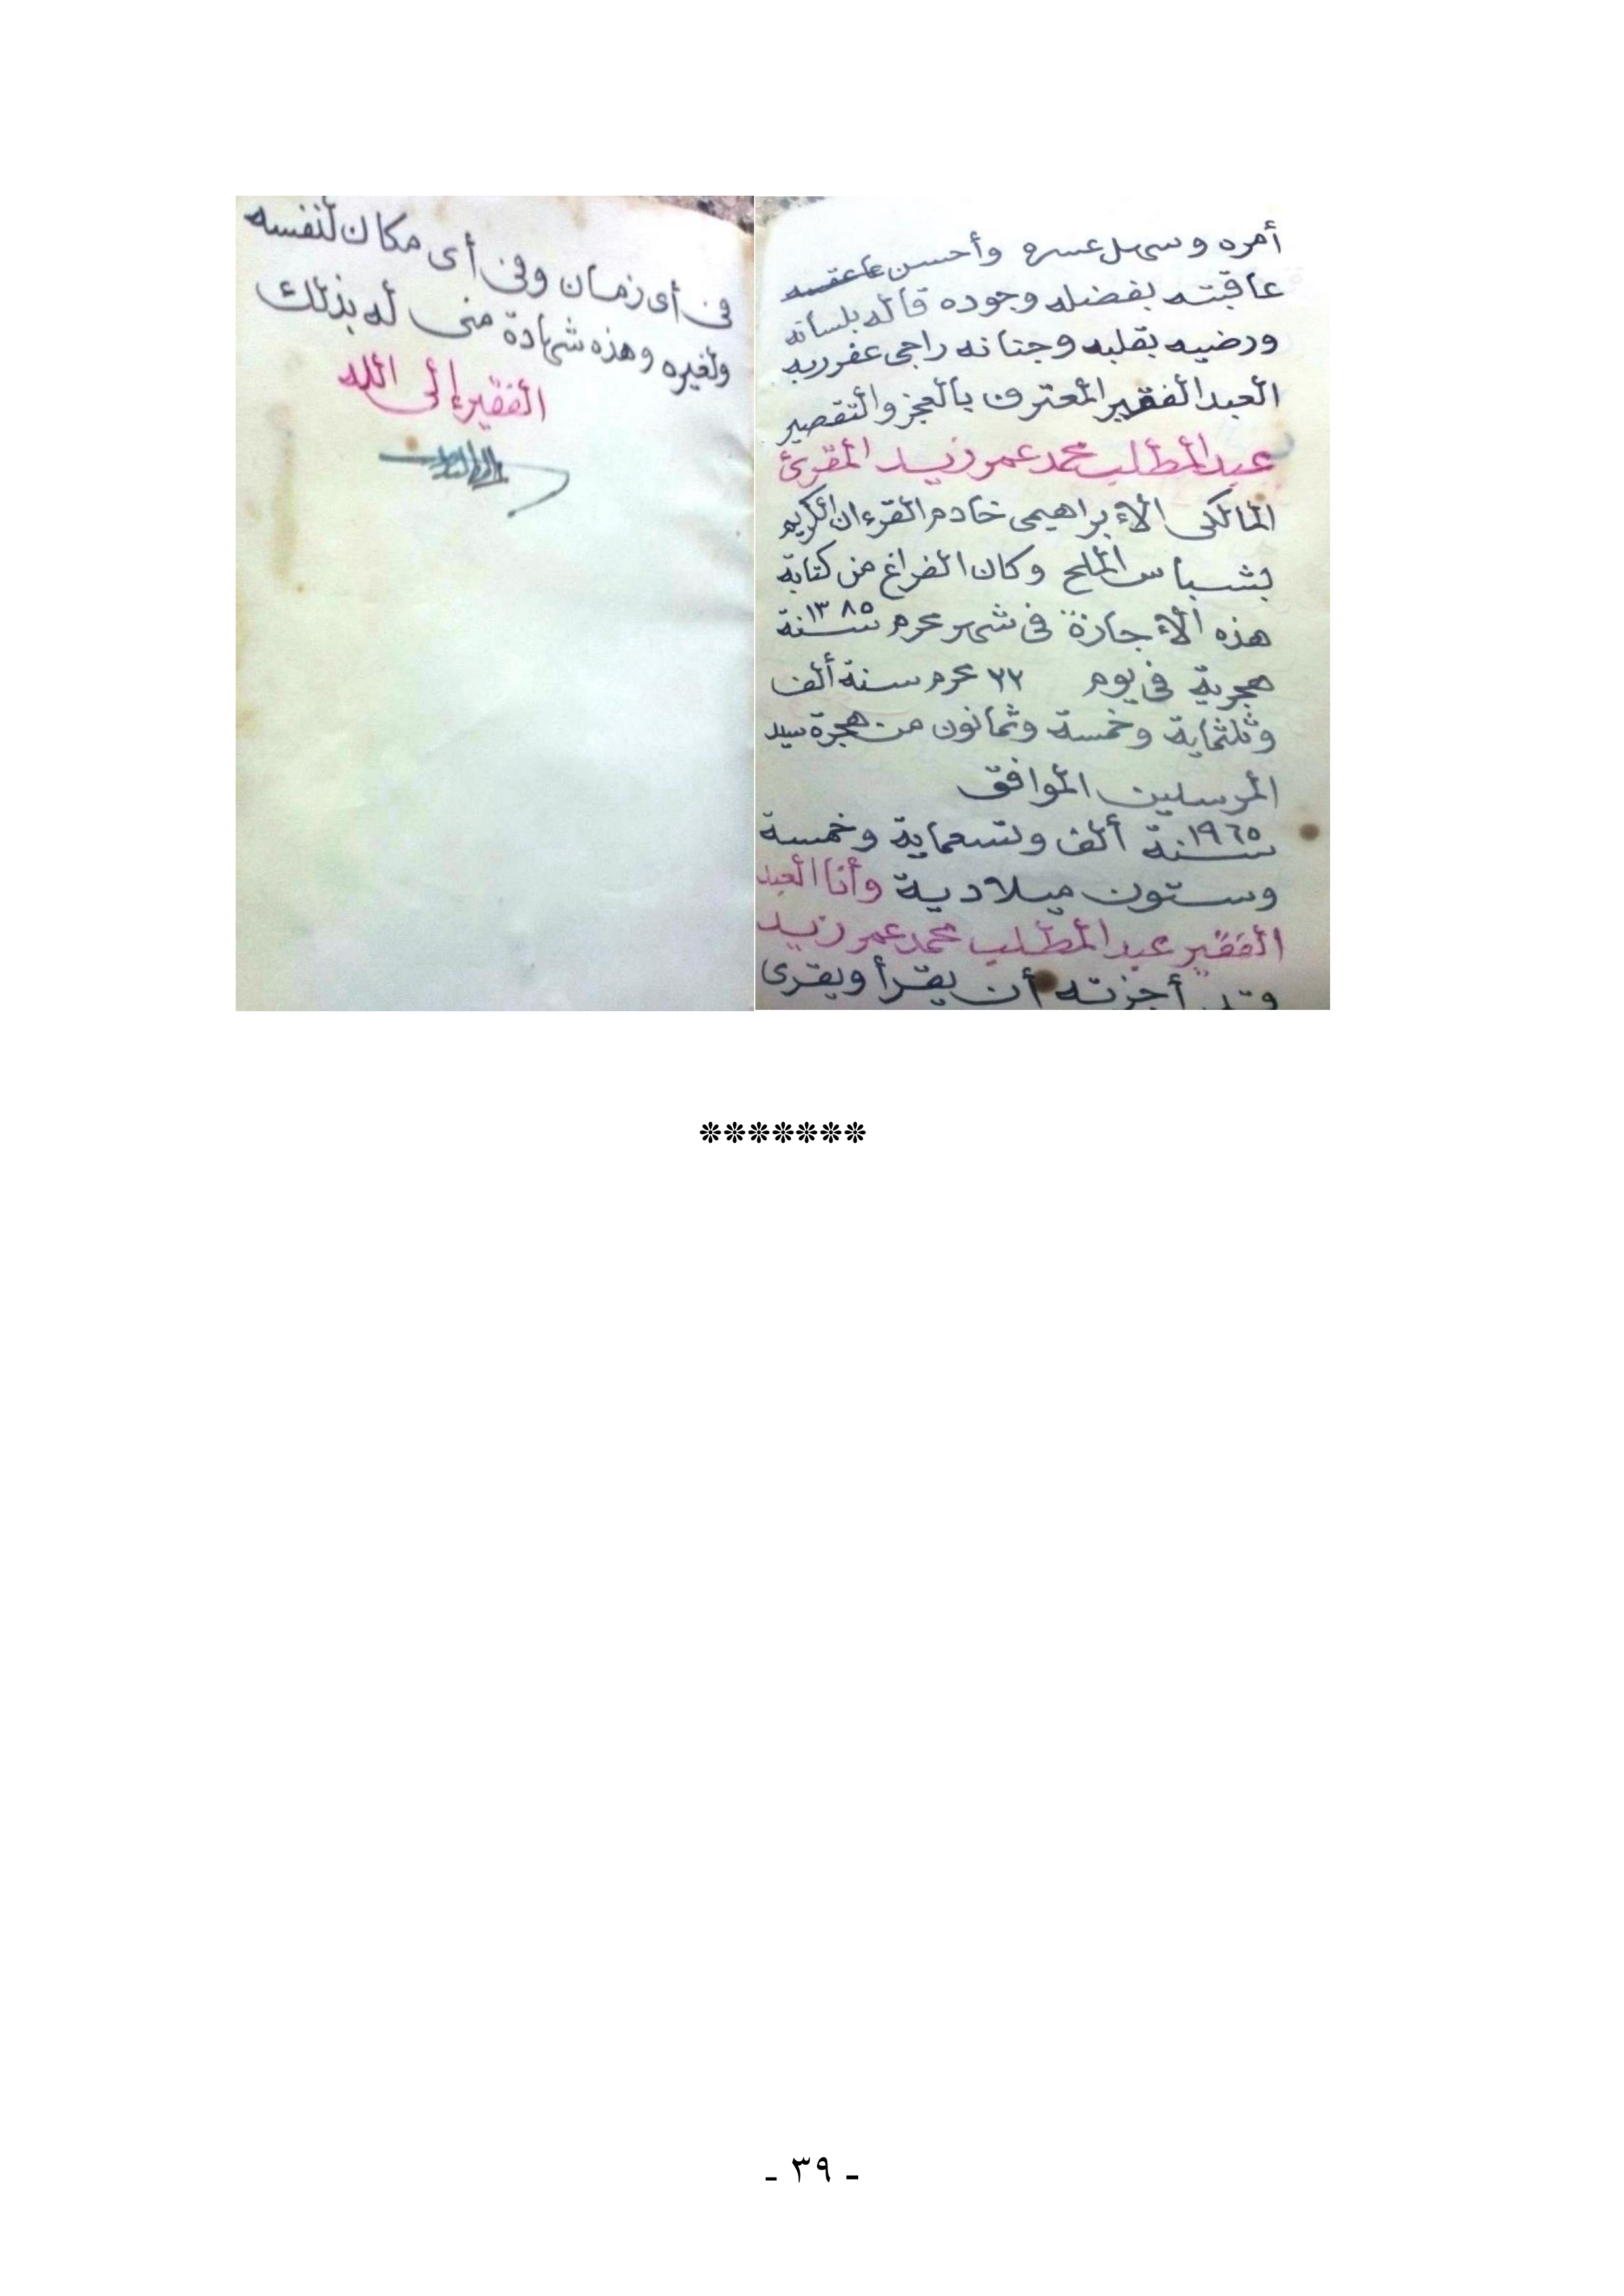 أمره وسهل عسره وأحسن
عاقبته بفضله وجوده قاله بلسانه
ورضيه بقلبه وجنانه راجى عفو ربه
العبد الفقير المعترف بالعجز والتقصير
عبد المطلب محمد عمر زيد المقرئ
المالكى الإبراهيمى خادم القرءان الكريم
بشباس الملح وكان الفراغ من كتابة
هذه الإجازة فى شهر محرم سنة ١٣٨٥
هجرية فى يوم ٢٢ محرم سنة ألف
وثلثماية وخمسة وثمانون من هجرة سيد
المرسلين الموافق
سنة ١٩٦٥ ألف وتسعماية وخمسة
وستون ميلادية وأنا العبد
الفقير عبد المطلب محمد عمر زيد
وقد أجزته أن يقرأ ويقرى
فى أى زمان وفى أى مكان لنفسه
ولغيره وهذه شهادة منى له بذلك
الفقير إلى الله
*******
- ٣٩ -